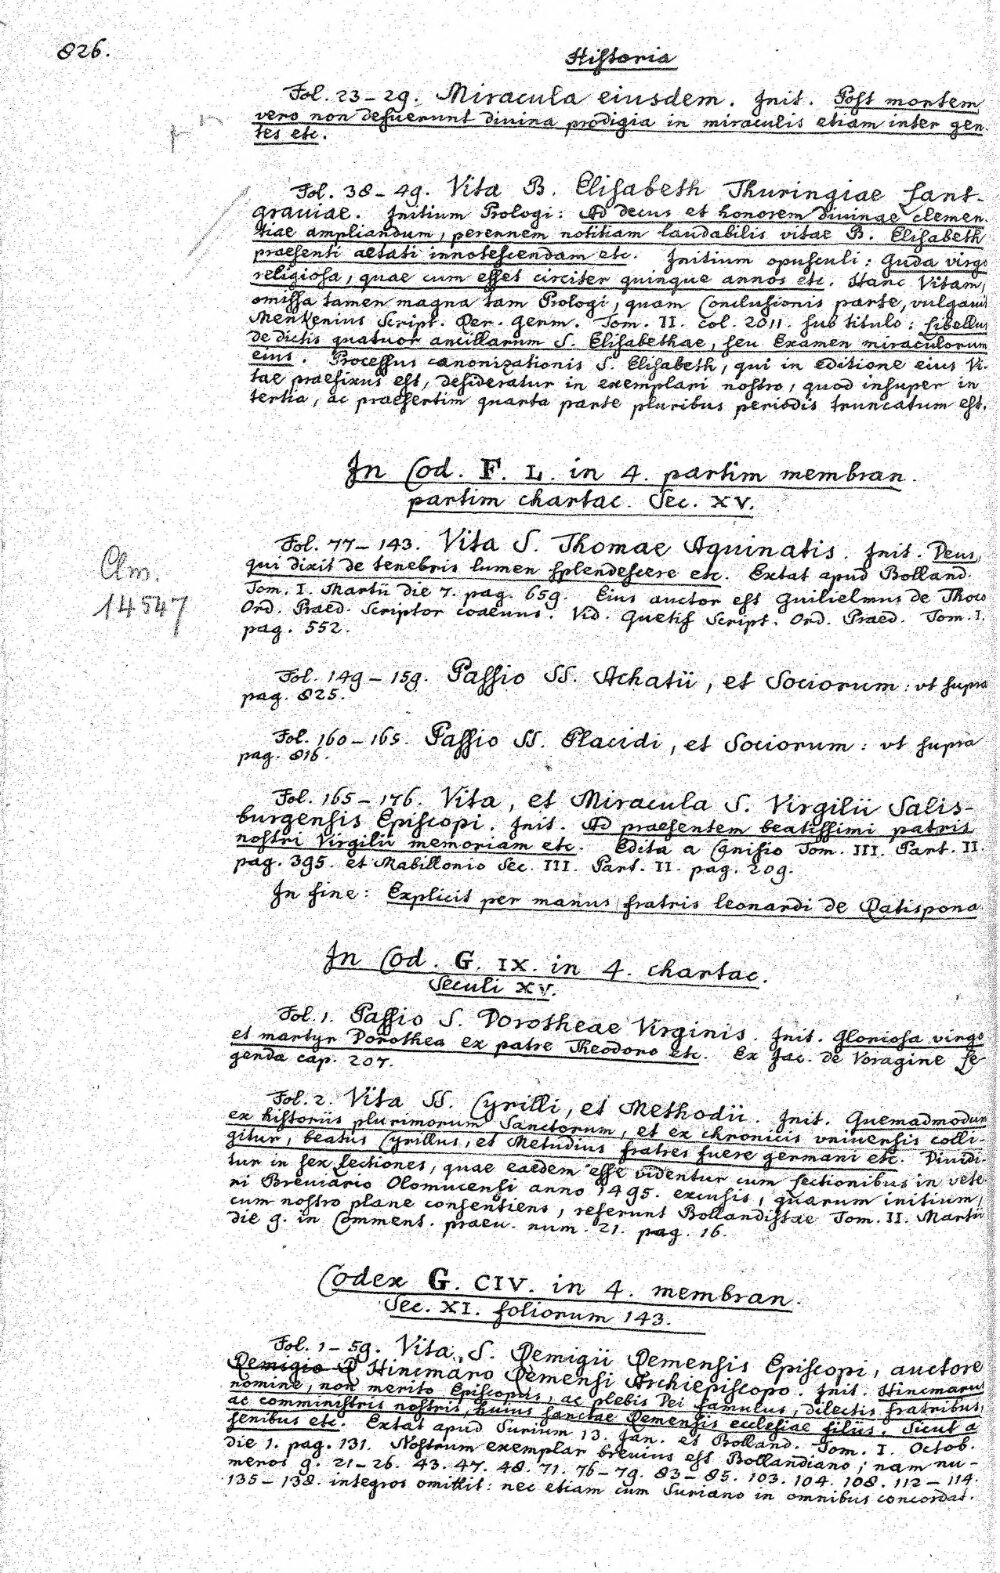 826.
Historia
Fol. 23–29. Miracula eiusdem. Init. Post mortem
vero non defuerunt divina prodigia in miraculis etiam inter gen
tes etc.
Fol. 38–49. Vita B. Elisabeth Thuringiae Lant-
graviae. Initium Prologi: Ad decus et honorem divinae clemen
tiae ampliandum, perennem notitiam laudabilis vitae B. Elisabeth
praesenti aetati innotescendam etc. Initium opusculi: Guda virgo
religiosa, quae cum esset circiter quinque annos etc. Hanc Vitam,
omissa tamen magna tam Prologi, quam Conclusionis parte, vulgavit
Menkenius Script. Rer. Germ. Tom. II. col. 2011. sub titulo: Libellus
de dictis quatuor ancillarum S. Elisabethae, seu Examen miraculorum
eius. Processus canonizationis S. Elisabeth, qui in editione eius Vi-
tae praefixus est, desideratur in exemplari nostro, quod insuper in
tertia, ac praesertim quarta parte pluribus periodis truncatum est.
In Cod. F. L. in 4. partim membran.
partim chartac. Sec. XV.
Clm.
14547
Fol. 77–143. Vita S. Thomae Aquinatis. Init. Deus,
qui dixit de tenebris lumen splendescere etc. Extat apud Bolland.
Tom. I. Martii die 7. pag. 659. Eius auctor est Guilielmus de Thoco
Ord. Praed. Scriptor coaevus. Vid. Quetif Script. Ord. Praed. Tom. I.
pag. 552.
Fol. 149–159. Passio SS. Achatii, et Sociorum: vt supra
pag. 825.
Fol. 160–165. Passio SS. Placidi, et Sociorum: vt supra
pag. 816.
Fol. 165–176. Vita, et Miracula S. Virgilii Salis-
burgensis Episcopi. Init. Ad praesentem beatissimi patris
nostri Virgilii memoriam etc. Edita a Canisio Tom. III. Part. II.
pag. 395. et Mabillonio Sec. III. Part. II. pag. 209.
In fine: Explicit per manus fratris leonardi de Ratispona.
In Cod. G. IX. in 4. chartac.
Seculi XV.
Fol. 1. Passio S. Dorotheae Virginis. Init. Gloriosa virgo
et martyr Dorothea ex patre Theodoro etc. Ex Jac. de Voragine Le-
genda cap. 207.
Fol. 2. Vita SS. Cyrilli, et Methodii. Init. Quemadmodum
ex historiis plurimorum Sanctorum, et ex chronicis vniuersis colli-
gitur, beatus Cyrillus, et Metudius fratres fuere germani etc. Dividi-
tur in sex Lectiones, quae eaedem esse videntur cum Lectionibus in vete-
ri Breviario Olomucensi anno 1495. excusis, quarum initium,
cum nostro plane consentiens, referunt Bollandistae Tom. II. Martii
die 9. in Comment. praev. num. 21. pag. 16.
Codex G. CIV. in 4. membran.
Sec. XI. foliorum 143.
Fol. 1–59. Vita S. Remigii Remensis Episcopi, auctore
Remigio R Hincmaro Remensi Archiepiscopo. Init. Hincmarus
nomine, non merito Episcopus, ac plebis Dei famulus, dilectis fratribus,
ac comministris nostris, huius sanctae Remensis ecclesiae filiis. Sicut a
senibus etc. Extat apud Surium 13. Jan. et Bolland. Tom. I. Octob.
die 1. pag. 131. Nostrum exemplar brevius est Bollandiano; nam nu-
meros 9. 21–26. 43. 47. 48. 71. 76–79. 83–85. 103. 104. 108. 112–114.
135–138. integros omittit: nec etiam cum Suriano in omnibus concordat.